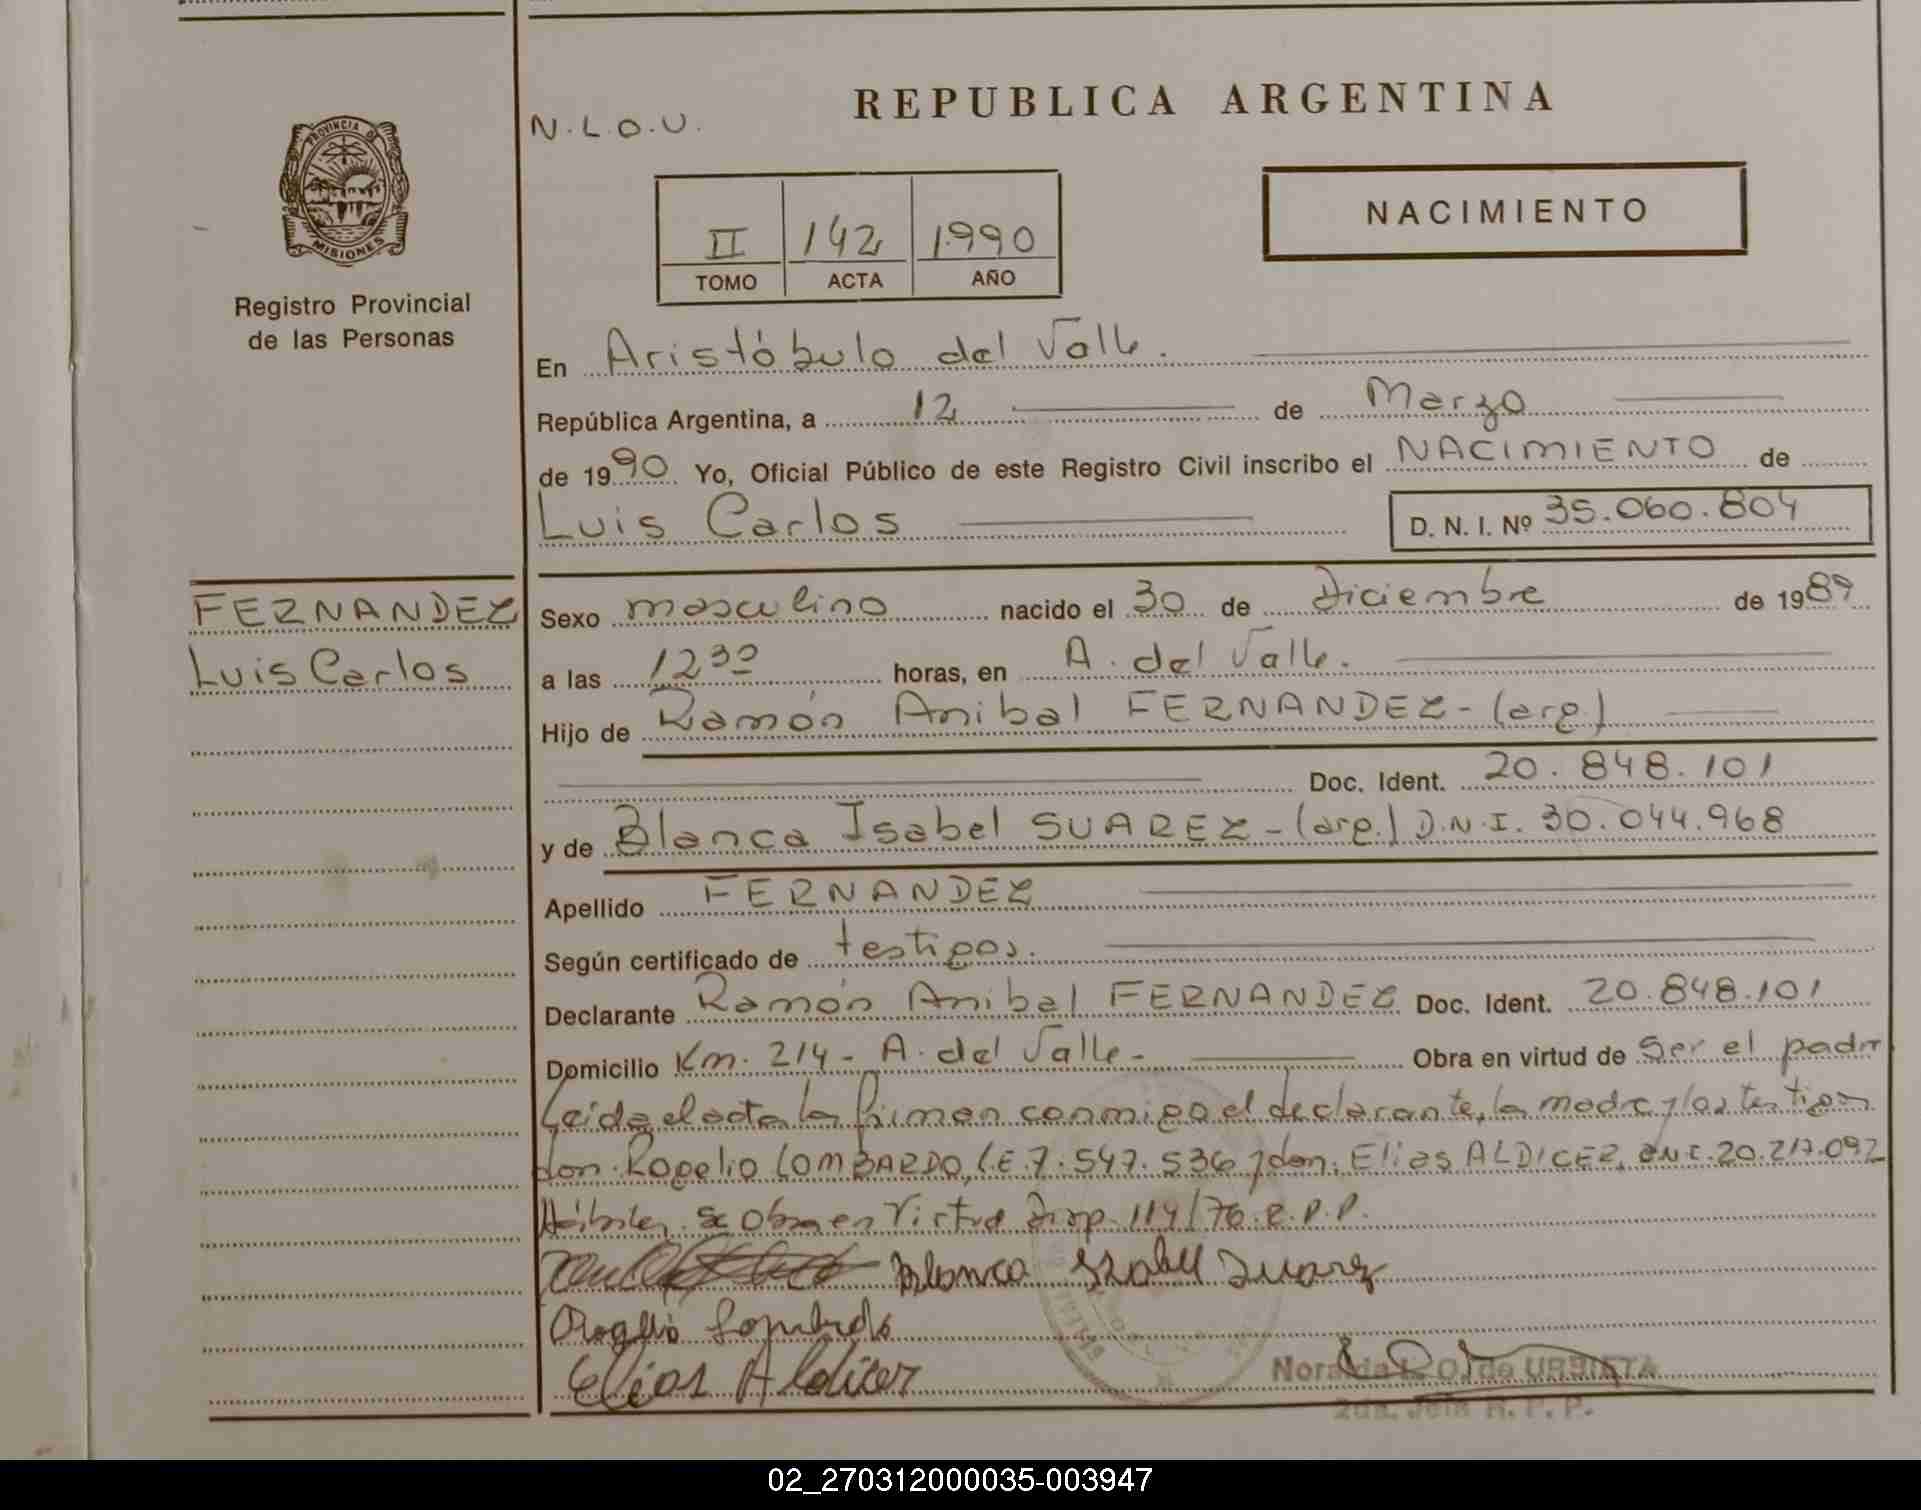 PROVINCIA DE
MISIONES
Registro Provincial
de las Personas
FERNANDEZ
Luis Carlos
N.L.O.U.
REPUBLICA ARGENTINA
II 142 1990
TOMO ACTA AÑO
NACIMIENTO
En Aristóbulo del Valle.
República Argentina, a 12 de Marzo
de 1990 Yo, Oficial Público de este Registro Civil inscribo el NACIMIENTO de
Luis Carlos D. N. I. Nº 35.060.804
Sexo masculino nacido el 30 de Diciembre de 1989
a las 12 30 horas, en A. del Valle.
Hijo de Ramón Anibal FERNANDEZ - (arg.)
Doc. Ident. 20.848.101
y de Blanca Isabel SUAREZ - (arg.) D.N.I. 30.044.968
Apellido FERNANDEZ
Según certificado de testigos.
Declarante Ramón Anibal FERNANDEZ Doc. Ident. 20.848.101
Domicilio Km. 214 - A. del Valle - Obra en virtud de Ser el padre
Leida el acta la firman conmigo el declarante, la madre y los testigos
don Rogelio LOMBARDO, L.E. 7.547.536 y don Elias ALDICER, D.N.I. 20.217.092
Hábiles. Se Obra en Virtud Disp. 114/76.R.P.P.
Blanca Izabel Suarez
Rogelio Lombardo
Elias Aldicer
de URBIETA
2da. Jefa R. P. P.
02_270312000035-003947